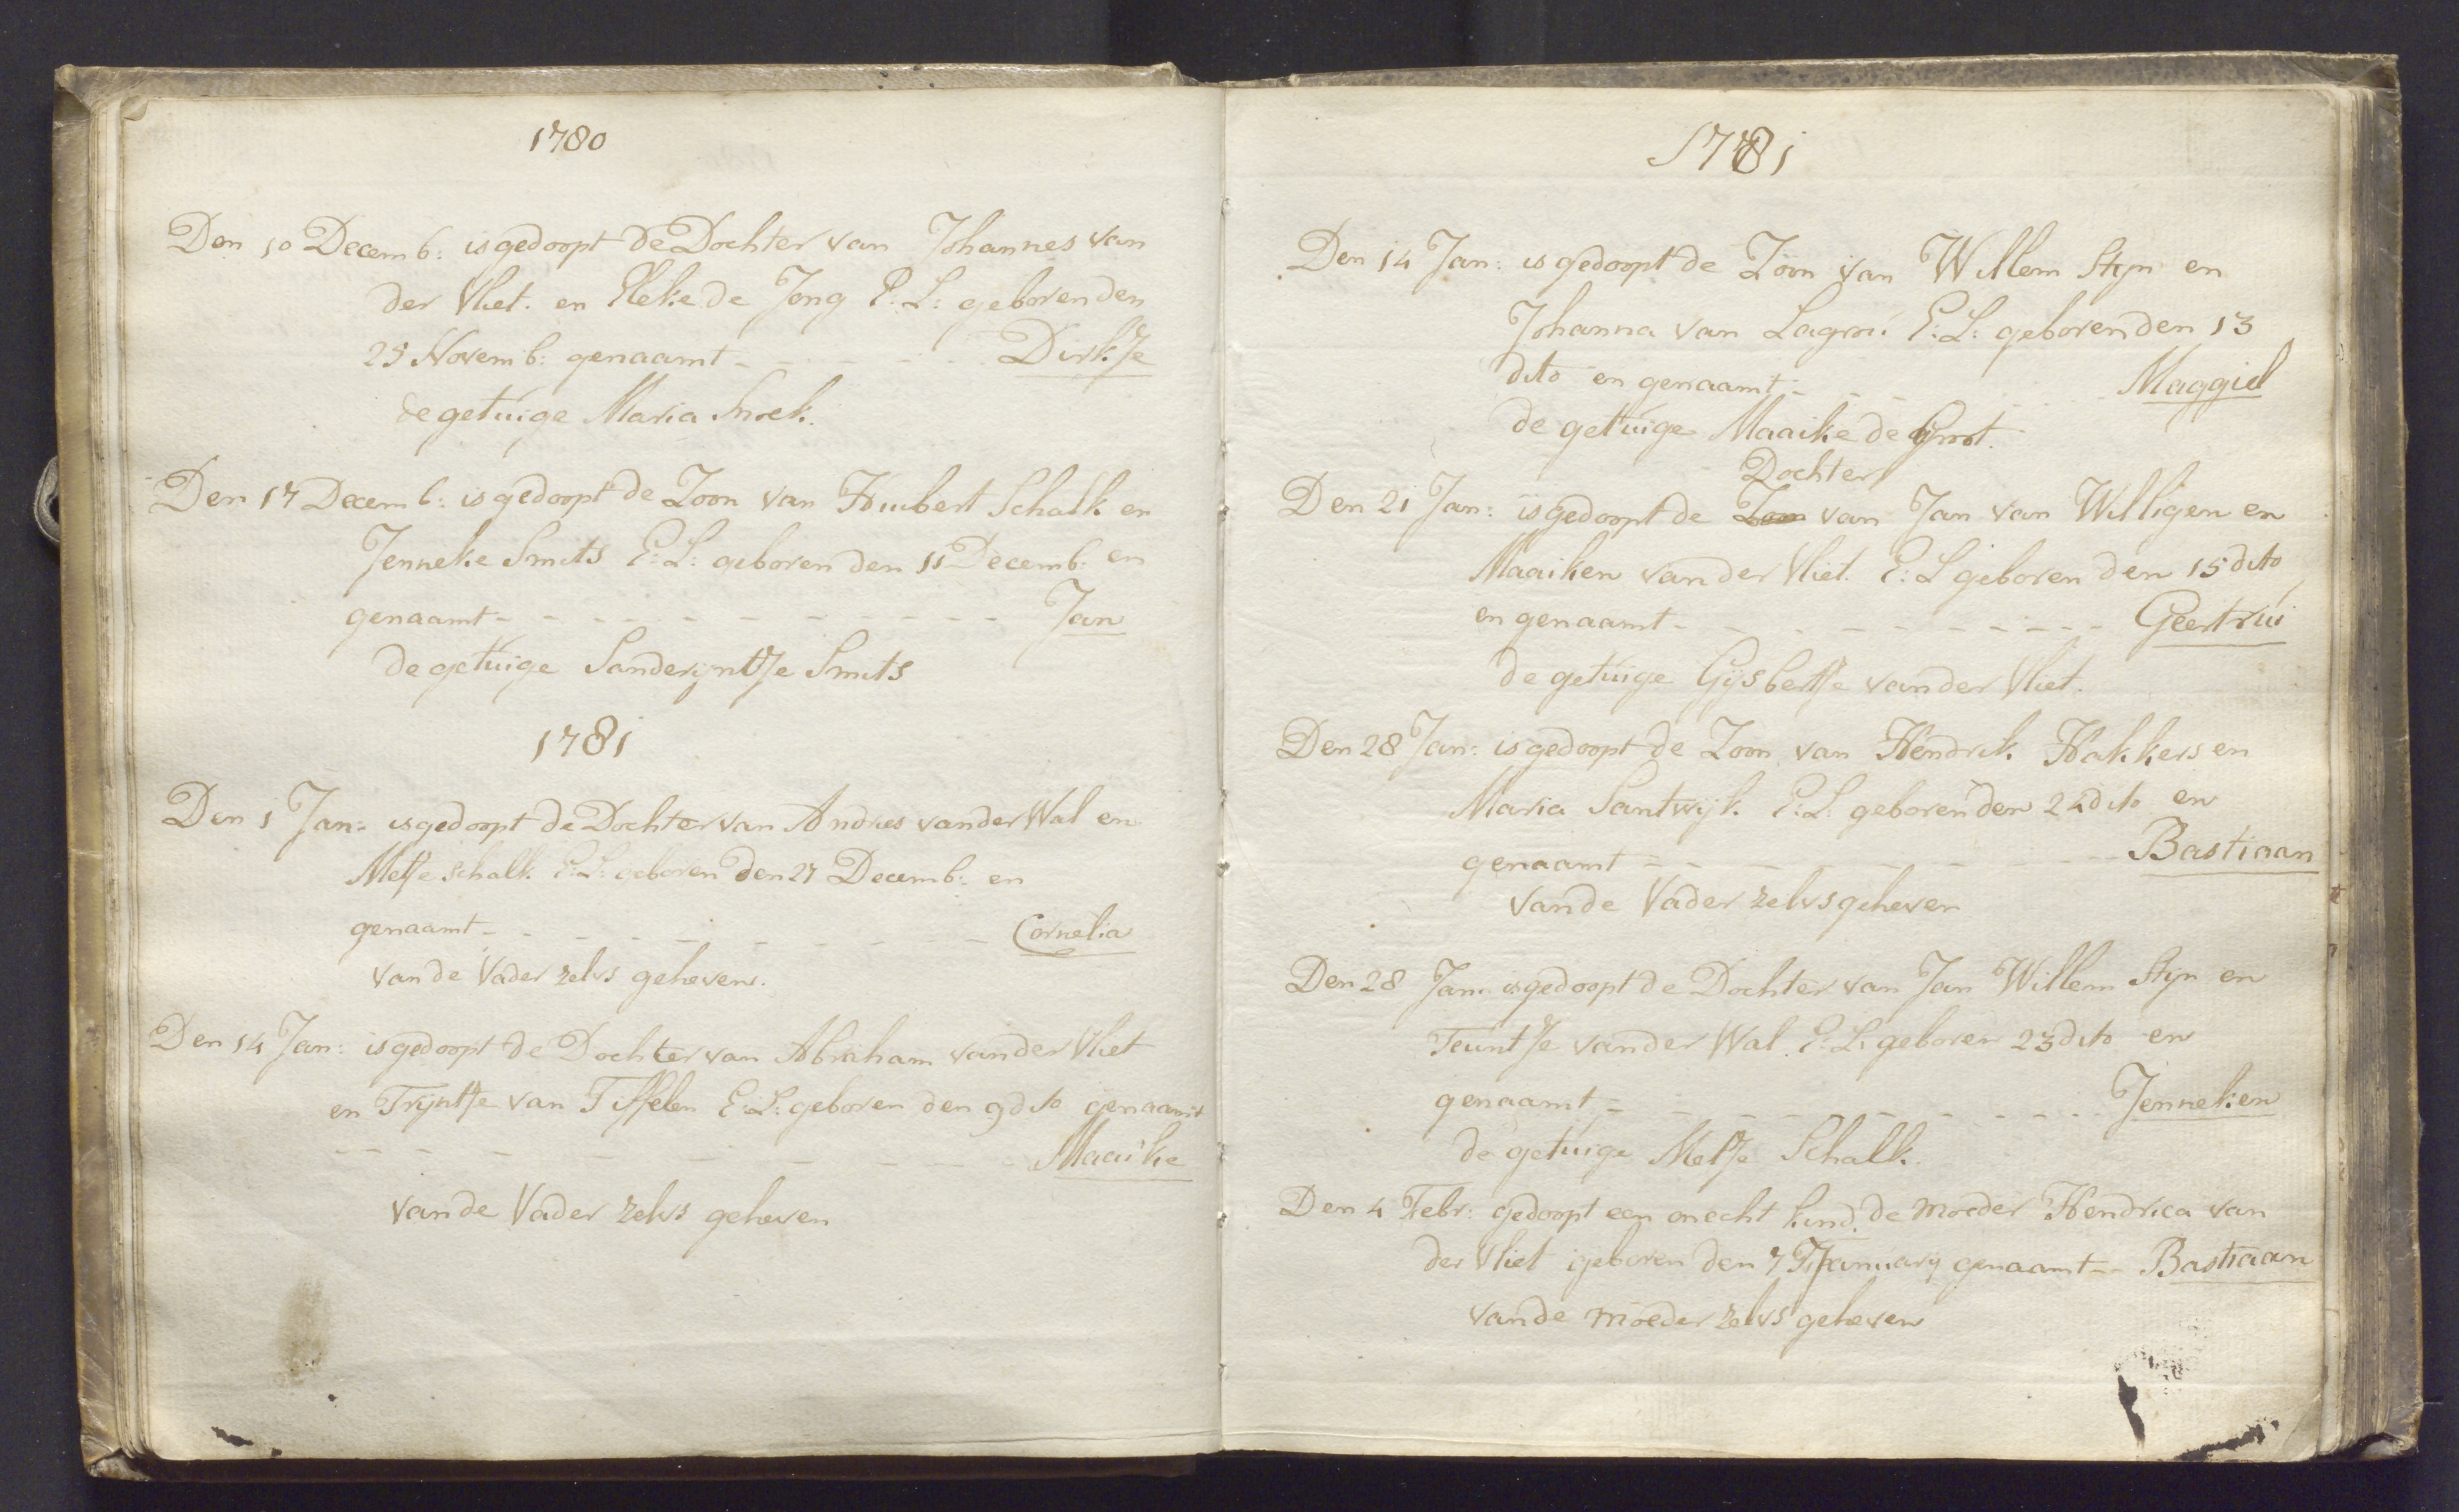 1780
Den 10 Decemb: is gedoopt de Dochter van Johannes van
der Vliet. en Eleke de Jong E:L: geboren den
25 Novemb: genaamt - - - - - Dirkje
de getuige Maria Snoek.
Den 17 Decemb: is gedoopt de Zoon van Huibert Schalk en
Jenneke Smits E:L: geboren den 11 Decemb: en
genaamt - - - - - - - - - - - Jan
de getuige Sanderijntje Smits
1781
Den 1 Jan: is gedoopt de Dochter van Andries vander Wal en
Metje Schalk E:L: geboren den 27 Decemb: en
genaamt - - - - - - - - - - Cornelia
van de Vader zelvs geheven.
Den 14 Jan: is gedoopt de Dochter van Abraham vander Vliet
en Trijntje van Tiffelen E:L: geboren den 9 dito genaamt
- - - - - - - - - - Maaike
van de Vader zelvs geheven
1781
Den 14 Jan: is gedoopt de Zoon van Willem Stijn en
Johanna van Lagrou E:L: geboren den 13
dito en genaamt - - - - - Maggiel
de getuige Maaike de Groot.
Dochter
Den 21 Jan: is gedoopt de Zoon van Jan van Willigen en
Maaiken vander Vliet. E:L geboren den 15 dito
en genaamt - - - - - - - - - - Geertrui
de getuige Gijsbertje vander Vliet.
Den 28 Jan: is gedoopt de Zoon van Hendrik Hakkers en
Maria Santwijk. E:L: geboren den 24 dito en
genaamt - - - - - - - - - - Bastiaan
van de Vader zelvs geheven
Den 28 Jan: is gedoopt de Dochter van Jan Willem Stijn en
Teuntje vander Wal. E:L: geboren 23 dito en
genaamt - - - - - - - - - - Jenneken
de getuige Metje Schalk.
Den 4 Febr: gedoopt een onecht kind. de moeder Hendrica van
der Vliet geboren den 7 January genaamt - - Bastiaan
van de moeder zelvs geheven